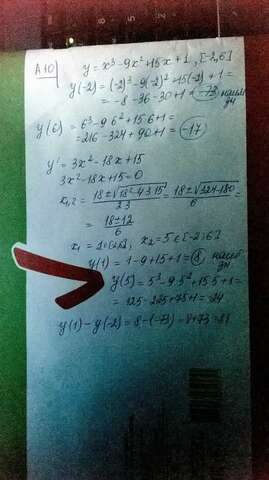 A10) y = x³ - 9x² + 15x + 1, [-2,6]
y(-2) = (-2)³ - 9(-2)² + 15(-2) + 1 =
= -8 - 36 - 30 + 1 = -73 наим
зн
y(6) = 6³ - 9·6² + 15·6 + 1 =
= 216 - 324 + 90 + 1 = -17
y' = 3x² - 18x + 15
3x² - 18x + 15 = 0
x₁,₂ = (18 ± √(18² - 4·3·15))/(2·3) = (18 ± √(324 - 180))/6 =
= (18 ± 12)/6
x₁ = 1 ∈ x₂ = 5 ∈ [-2;6]
y(1) = 1 - 9 + 15 + 1 = 8 наиб
зн.
y(5) = 5³ - 9·5² + 15·5 + 1 =
= 125 - 225 + 75 + 1 = -24
y(1) - y(-2) = 8 - (-73) = 8 + 73 = 81